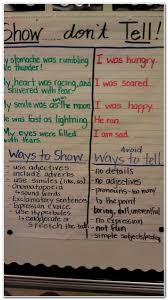 Show don't Tell!
My stomache was rumbling
like thunder!
I was hungry.
My heart was racing, and
I shivered with fear.
I was scared.
My smile was a mile
I was happy.
He was fast as lightning.
He ran.
My eyes were filled
with tears.
I am sad.
Ways to Show
use adjectives
include adverbs
use similes (like, as)
Onomatopoeia
sound words
Exclamatory sentence
Expression
use Hyperboles
exaggerate or
stretch the truth
Avoid
Ways to tell
no details
no adjectives
pronouns - to many
to the point
boring, dull, uneventful
no expression
not fun
simple subjects/predi